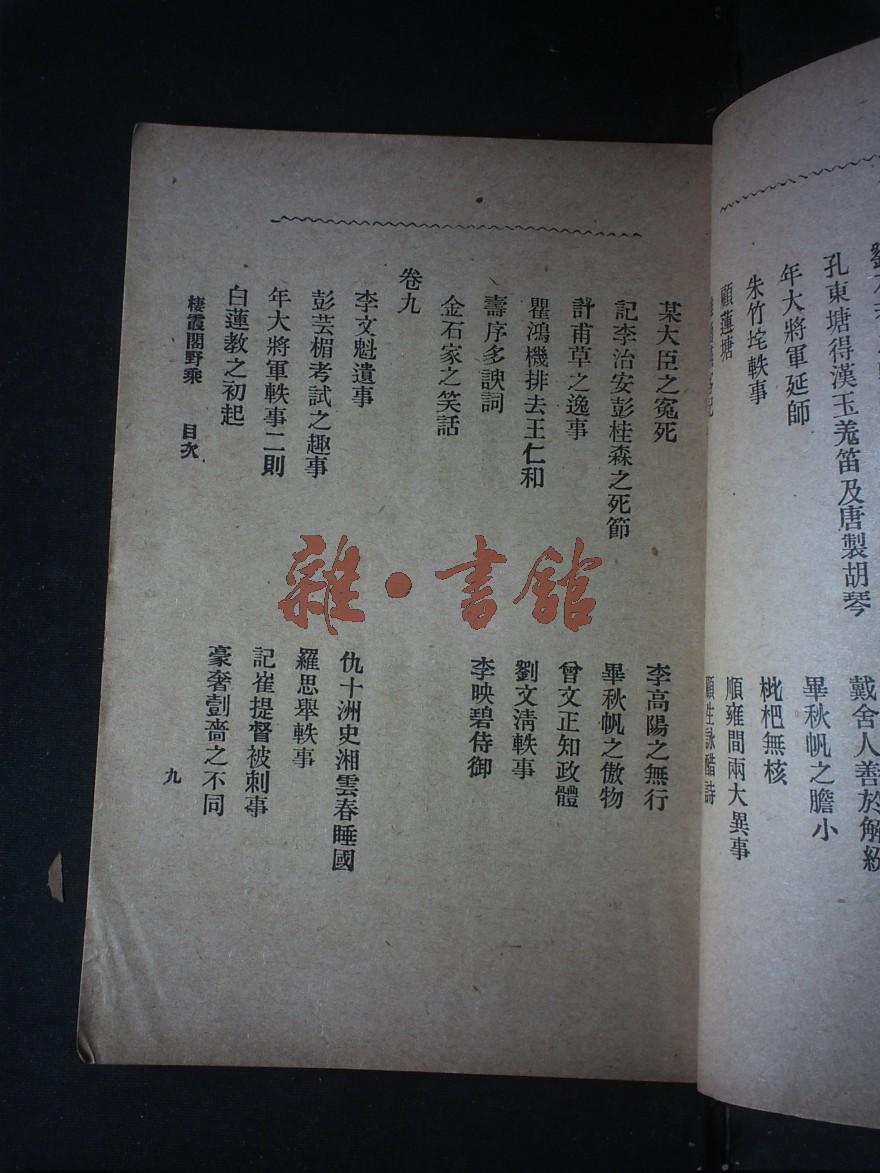 孔東塘得漢玉羌笛及唐製胡琴
戴舍人善於解紛
年大將軍延師
畢秋帆之膽小
朱竹垞軼事
枇杷無核
顧蓮塘
順雍間兩大異事
顧生詠醋詩
某大臣之冤死
李高陽之無行
記李治安彭桂森之死節
畢秋帆之傲物
計甫草之逸事
曾文正知政體
瞿鴻機排去王仁和
劉文清軼事
壽序多諛詞
李映碧侍御
金石家之笑話
卷九
李文魁遺事
仇十洲史湘雲春睡圖
彭芸楣考試之趣事
羅思舉軼事
年大將軍軼事二則
記崔提督被刺事
白蓮教之初起
豪奢劃嗇之不同
棲霞閣野乘 目次
九
雜·書館